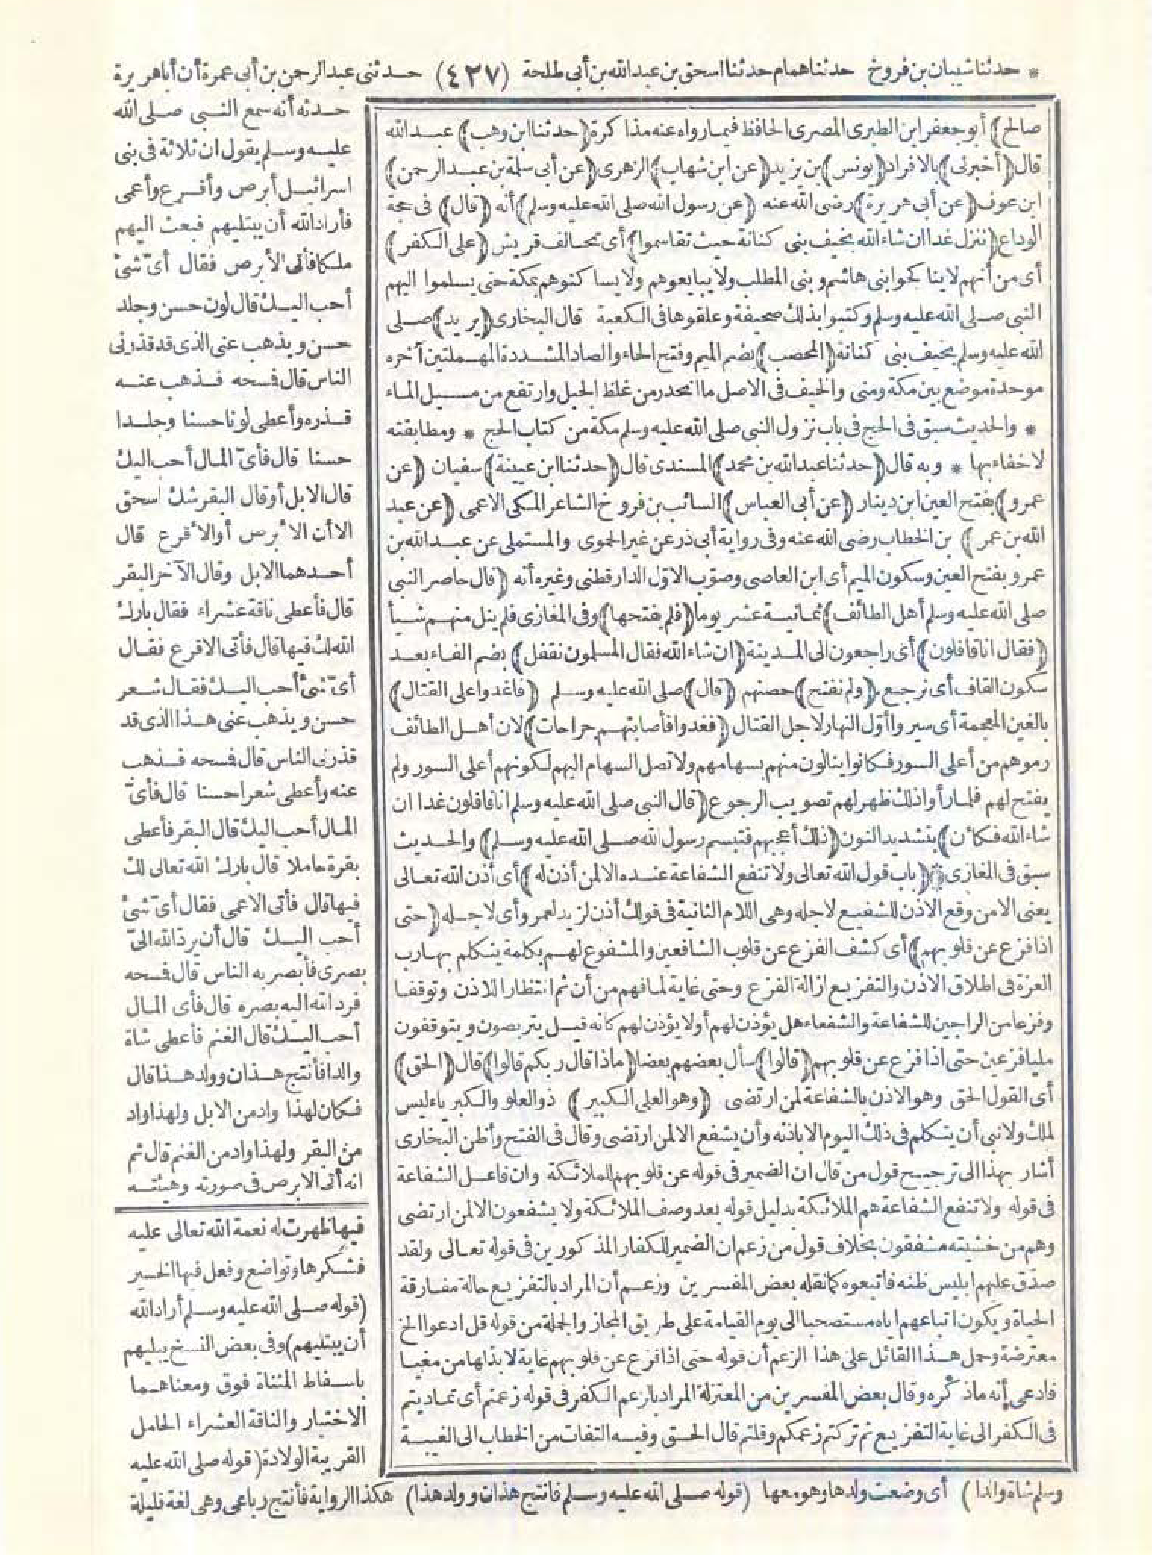 * حدثنا شيبان بن فروخ حدثنا همام حدثنا اسحق بن عبدالله بن أبي طلحة (٤٣٧) حدثني عبد الرحمن بن أبي عمرة أن أبا هريرة
صالح) أبو جعفر ابن الطبري المصري الحافظ فيما رواه عنه مذاكرة (حدثنا ابن وهب) عبد الله
قال (أخبرني) بالافراد (يونس) بن يزيد (عن ابن شهاب) الزهري (عن أبي سلمة بن عبد الرحمن)
ابن عوف (عن أبي هريرة) رضي الله عنه (عن رسول الله صلى الله عليه وسلم) أنه (قال) في حجة
الوداع (ننزل غدا ان شاء الله بخيف بني كنانة حيث تقاسموا) أي تحالف قريش (على الكفر)
أي من أنهم لا يناكحوا بني هاشم وبني المطلب ولا يبايعوهم ولا يساكنوهم بمكة حتى يسلموا اليهم
النبي صلى الله عليه وسلم وكتبوا بذلك صحيفة وعلقوها في الكعبة قال البخاري (يريد) صلى
الله عليه وسلم بخيف بني كنانة (المحصب) بضم الميم وفتح الحاء والصاد المشددة المهملتين آخره
موحدة موضع بين مكة ومنى والخيف في الاصل ما انحدر من غلظ الجبل وارتفع من مسيل الماء
* والحديث سبق في الحج في باب نزول النبي صلى الله عليه وسلم مكة من كتاب الحج * ومطابقته
لا خفاء بها * وبه قال (حدثنا عبد الله بن محمد) المسندي قال (حدثنا ابن عيينة) سفيان (عن
عمرو) بفتح العين ابن دينار (عن أبي العباس) السائب بن فروخ الشاعر المكي الاعمى (عن عبد
الله بن عمر) بن الخطاب رضي الله عنه وفي رواية أبي ذر عن غير الحموي والمستملي عن عبد الله بن
عمرو بفتح العين وسكون الميم أي ابن العاصي وصوّب الاوّل الدارقطني وغيره أنه (قال حاصر النبي
صلى الله عليه وسلم أهل الطائف) ثمانية عشر يوما (فلم يفتحها) وفي المغازي فلم ينل منهم شيأ
(فقال انا قافلون) أي راجعون الى المدينة (ان شاء الله فقال المسلمون نقفل) بضم الفاء بعد
سكون القاف أي نرجع (ولم نفتح) حصنهم (قال) صلى الله عليه وسلم (فاغدوا على القتال)
بالغين المعجمة أي سيروا أوّل النهار لاجل القتال (فغدوا فأصابتهم جراحات) لان أهل الطائف
رموهم من أعلى السور فكانوا ينالون منهم بسهامهم ولا تصل السهام اليهم لكونهم أعلى السور ولم
يفتح لهم فلما رأوا ذلك ظهر لهم تصويب الرجوع (قال النبي صلى الله عليه وسلم انا قافلون غدا ان
شاء الله فكأن) بتشديد النون (ذلك أعجبهم فتبسم رسول الله صلى الله عليه وسلم) والحديث
سبق في المغازي (باب قول الله تعالى ولا تنفع الشفاعة عنده الا لمن أذن له) أي أذن الله تعالى
يعني الا من وقع الاذن للشفيع لاجله وهي اللام الثانية في قولك أذن لزيد لعمرو أي لاجله (حتى
اذا فزع عن قلوبهم) أي كشف الفزع عن قلوب الشافعين والمشفوع لهم بكلمة يتكلم بها رب
العزة في اطلاق الاذن والتفزيع ازالة الفزع وحتى غاية لما فهم من أن ثم انتظارا للاذن وتوقفا
وفزعا من الراجين للشفاعة والشفعاء هل يؤذن لهم أولا يؤذن لهم كأنه قيل يتربصون ويتوقفون
مليا فزعين حتى اذا فزع عن قلوبهم (قالوا) سأل بعضهم بعضا (ماذا قال ربكم قالوا) قال (الحق)
أي القول الحق وهو الاذن بالشفاعة لمن ارتضى (وهو العلي الكبير) ذو العلو والكبرياء ليس
لملك ولا نبي أن يتكلم في ذلك اليوم الا باذنه وأن يشفع الا لمن ارتضى وقال في الفتح وأظن البخاري
أشار بهذا الى ترجيح قول من قال ان الضمير في قوله عن قلوبهم للملائكة وان فاعل الشفاعة
في قوله ولا تنفع الشفاعة هم الملائكة بدليل قوله بعد وصف الملائكة ولا يشفعون الا لمن ارتضى
وهم من خشيته مشفقون بخلاف قول من زعم ان الضمير للكفار المذكورين في قوله تعالى ولقد
صدق عليهم ابليس ظنه فاتبعوه كما نقله بعض المفسرين وزعم أن المراد بالتفزيع حالة مفارقة
الحياة ويكون اتباعهم اياه مستصحبا الى يوم القيامة على طريق المجاز والجملة من قوله قل ادعوا الخ
معترضة وحمل هذا القائل على هذا الزعم أن قوله حتى اذا فزع عن قلوبهم غاية لا بد لها من مغيا
فادعى أنه ما ذكره وقال بعض المفسرين من المعتزلة المراد بالزعم الكفر في قوله زعمتم أي تماديتم
في الكفر الى غاية التفزيع ثم تركتم زعمكم وقلتم قال الحق وفيه التفات من الخطاب الى الغيبة
حدثه أنه سمع النبي صلى الله
عليه وسلم يقول ان ثلاثة في بني
اسرائيل أبرص وأقرع وأعمى
فأراد الله أن يبتليهم فبعث اليهم
ملكا فأتى الأبرص فقال أيّ شئ
أحب اليك قال لون حسن وجلد
حسن ويذهب عني الذي قد قذرني
الناس قال فمسحه فذهب عنه
قذره وأعطى لونا حسنا وجلدا
حسنا قال فأيّ المال أحب اليك
قال الابل أو قال البقر شك اسحق
الا أن الأبرص أو الأقرع قال
أحدهما الابل وقال الآخر البقر
قال فأعطى ناقة عشراء فقال بارك
الله لك فيها قال فأتى الاقرع فقال
أيّ شئ أحب اليك فقال شعر
حسن ويذهب عني هذا الذي قد
قذرني الناس قال فمسحه فذهب
عنه وأعطى شعرا حسنا قال فأيّ
المال أحب اليك قال البقر فأعطى
بقرة حاملا قال بارك الله تعالى لك
فيها قال فأتى الاعمى فقال أيّ شئ
أحب اليك قال أن يرد الله اليّ
بصري فأبصر به الناس قال فمسحه
فرد الله اليه بصره قال فأي المال
أحب اليك قال الغنم فأعطى شاة
والدا فأنتج هذان وولد هذا قال
فكان لهذا واد من الابل ولهذا واد
من البقر ولهذا واد من الغنم قال ثم
انه أتى الابرص في صورته وهيئته
فيها ظهرت له نعمة الله تعالى عليه
فشكرها وتواضع وفعل فيها الخير
(قوله صلى الله عليه وسلم أراد الله
أن يبتليهم) وفي بعض النسخ يبليهم
باسقاط المثناة فوق ومعناهما
الاختبار والناقة العشراء الحامل
القريبة الولادة (قوله صلى الله عليه
وسلم شاة والدا) أي وضعت ولدها وهو معها (قوله صلى الله عليه وسلم فأنتج هذان وولد هذا) هكذا الرواية فأنتج رباعي وهي لغة قليلة